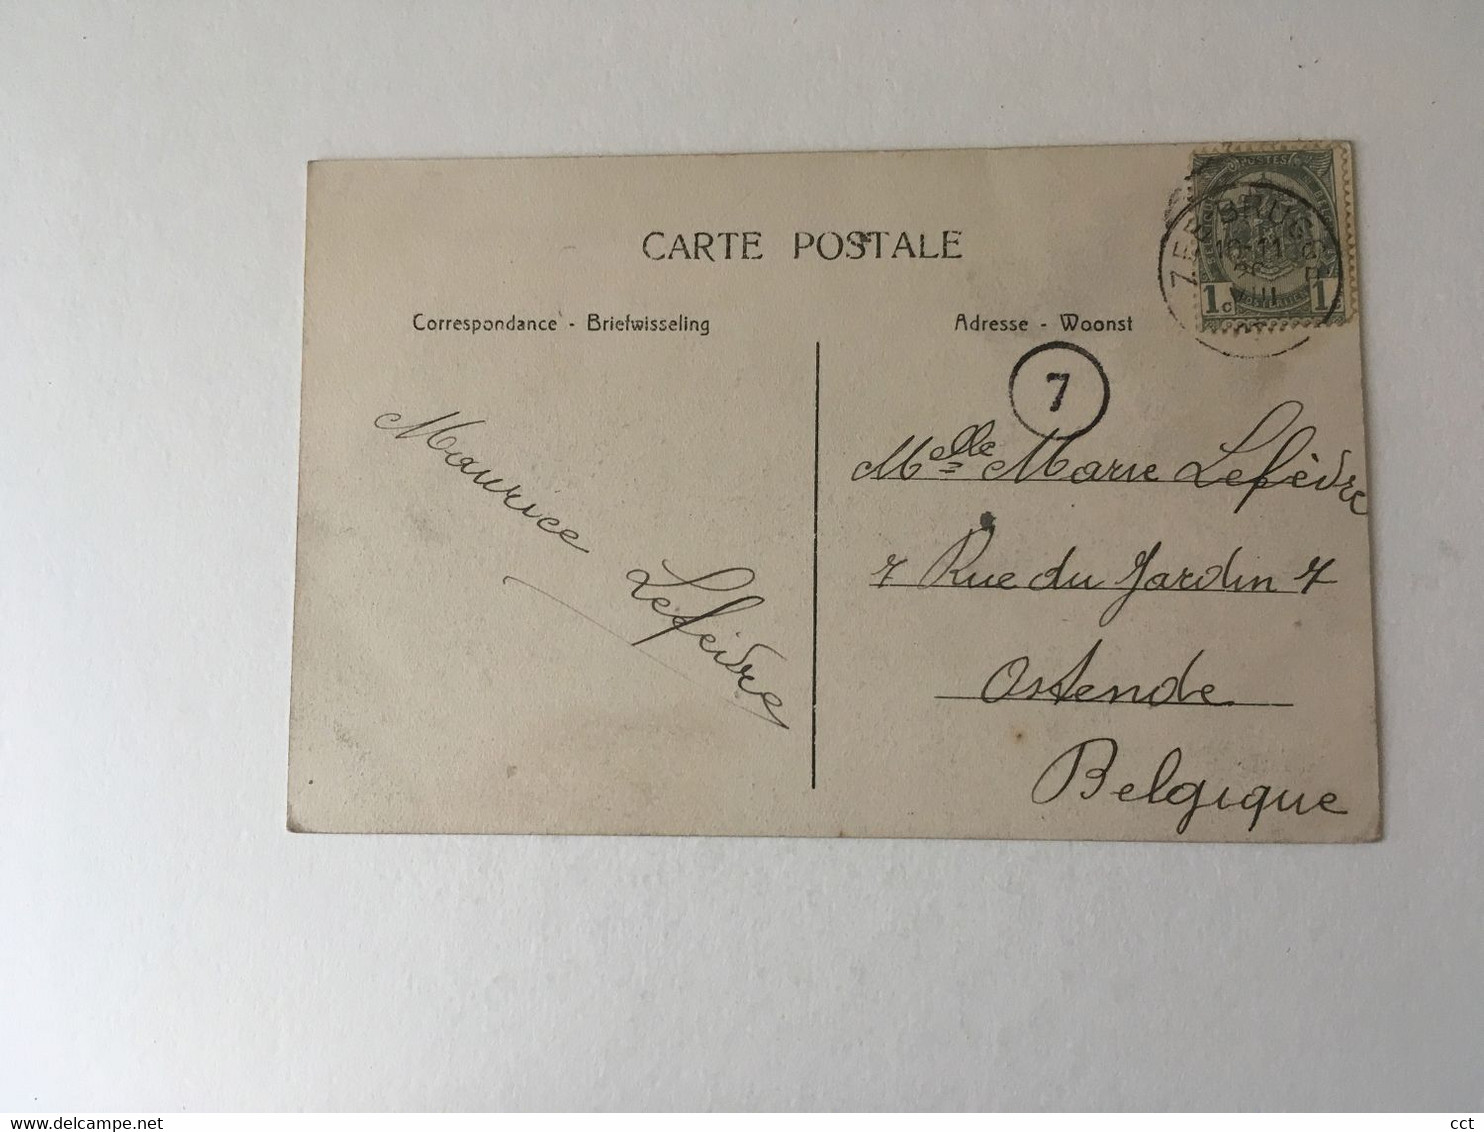 CARTE POSTALE
Correspondance - Briefwisseling
Adresse - Woonst
POSTES
ZEEBRUGGE
10-11
1c 1c
7
Maurice Lefèvre
Melle Marie Lefèvre
7 Rue du Jardin 7
Ostende
Belgique
www.delcampe.net
cct